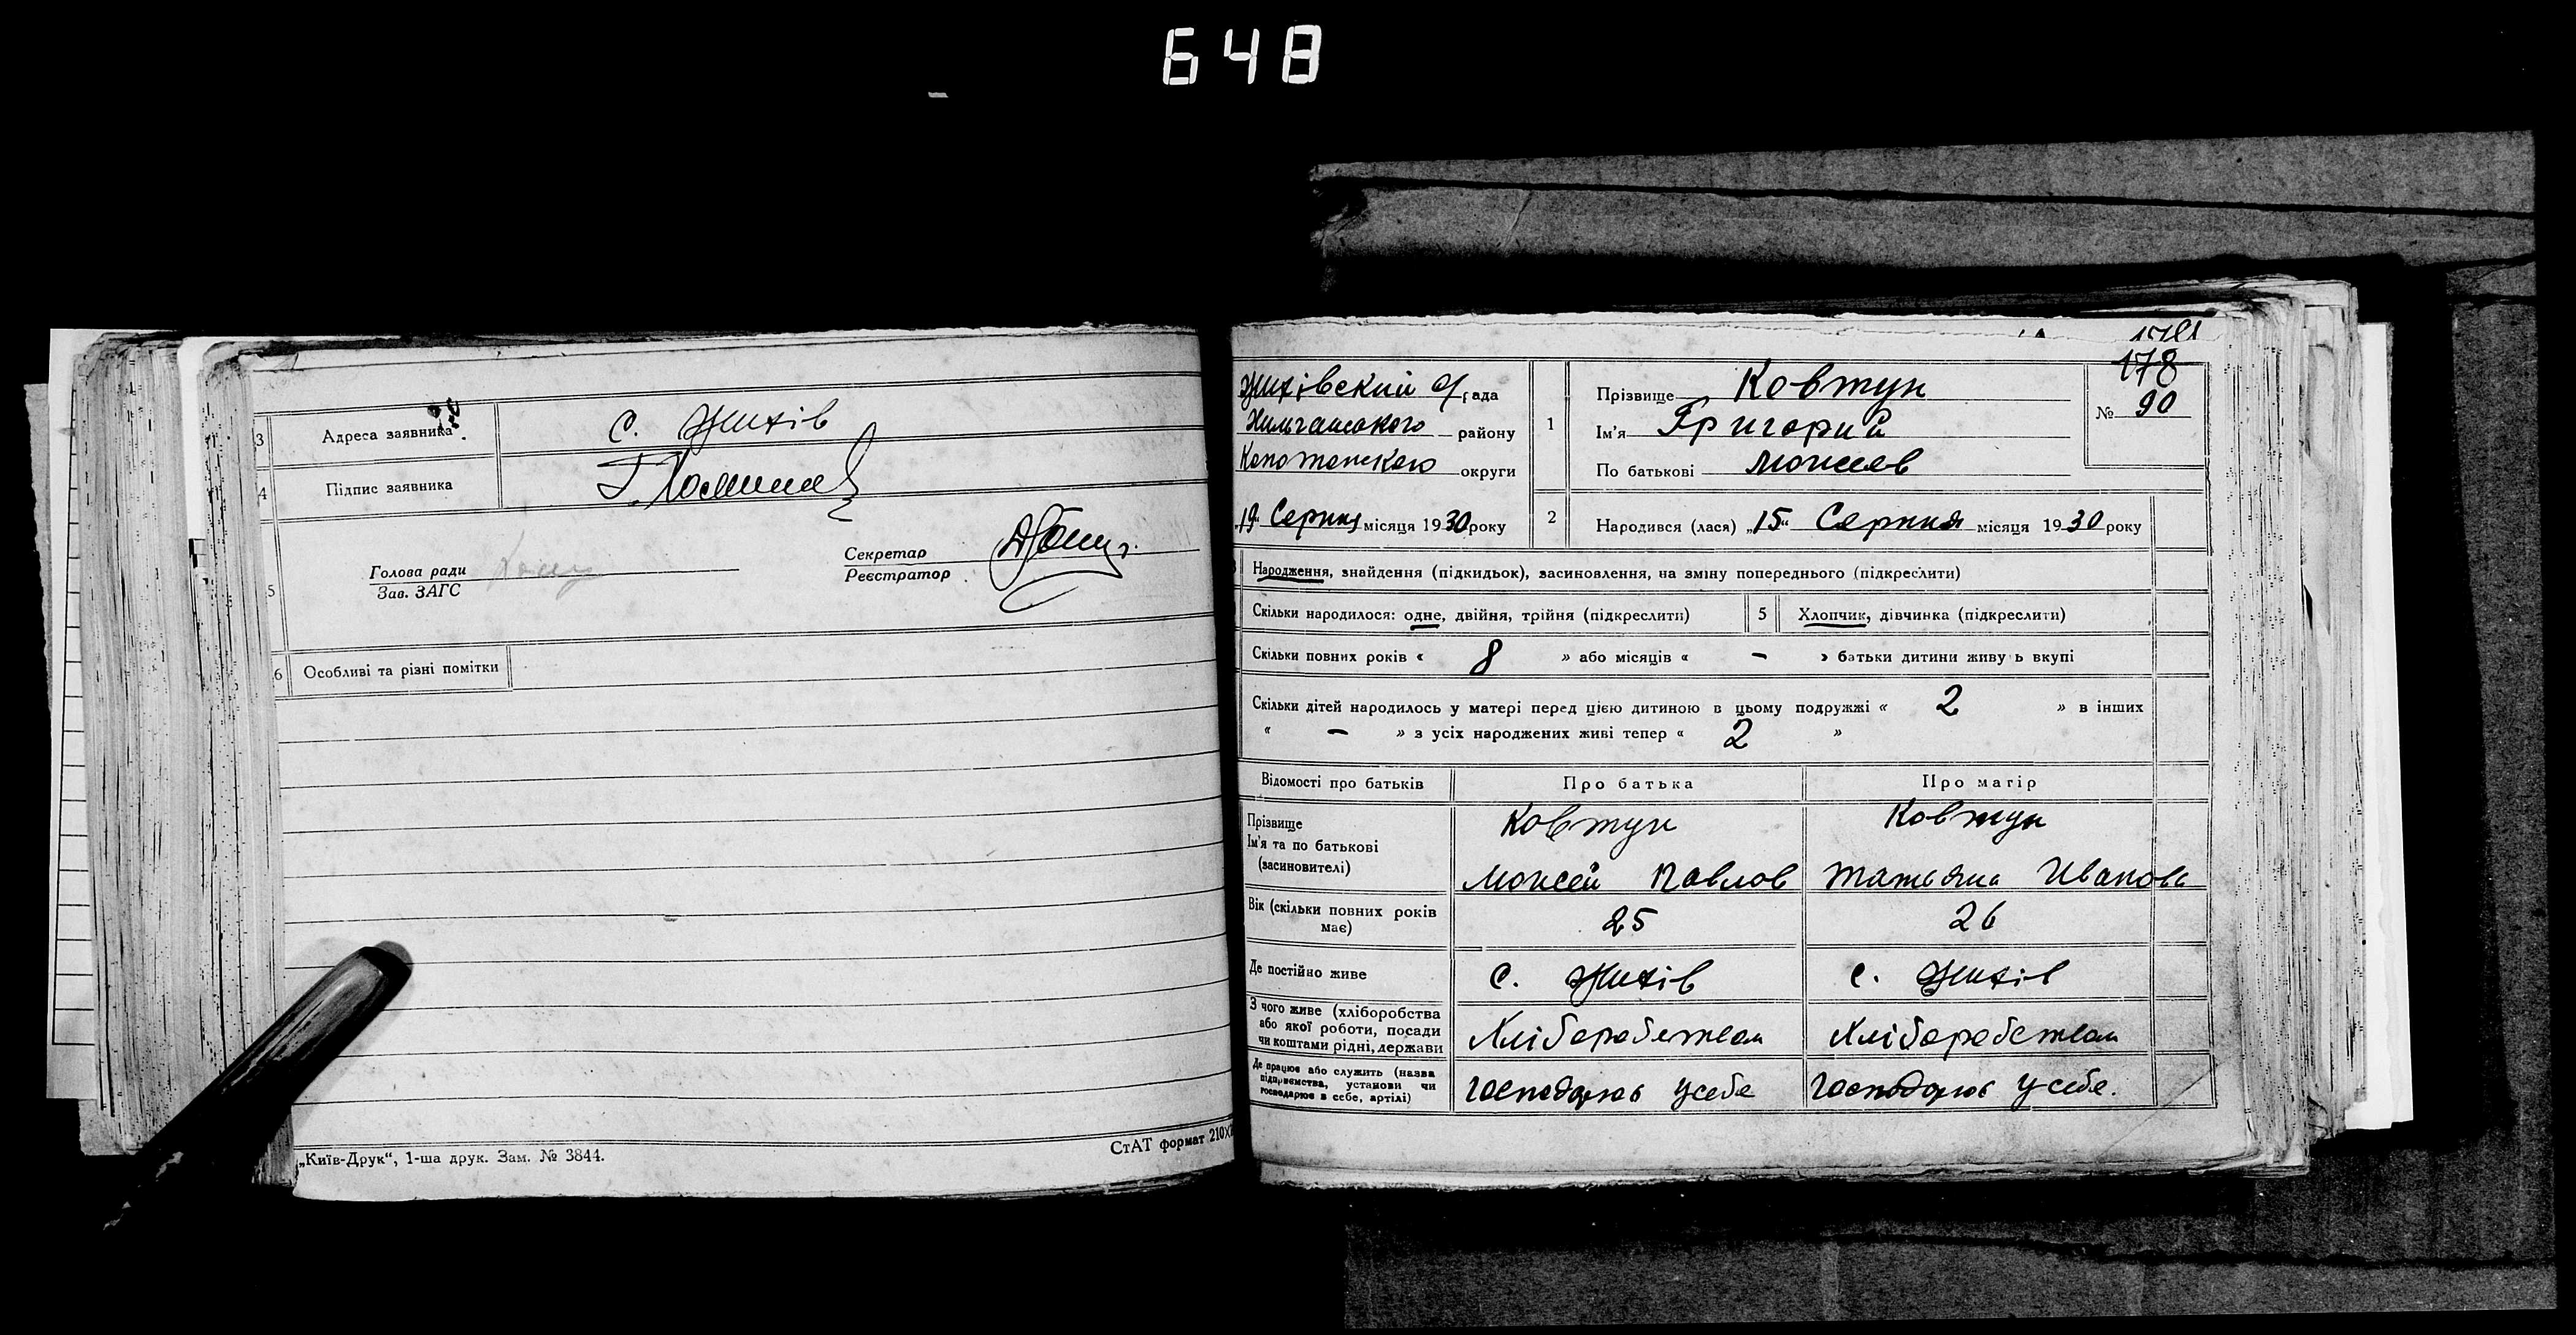 648
3 Адреса заявника с. Жихів
4 Підпис заявника
5 Голова ради
Зав. ЗАГС
Секретар
Реєстратор
6 Особливі та різні помітки
„Київ-Друк“, 1-ша друк. Зам. № 3844.
СтАТ формат 210X
178
№ 90
Жихівский с/рада
Хильчанського району
Конотопского округи
„19“ Серпня місяця 1930 року
1 Прізвище Ковтун
Ім'я Григорий
По батькові Моисеев
2 Народився (лася) „15“ Серпня місяця 1930 року
Народження, знайдення (підкидьок), засиновлення, на зміну попереднього (підкреслити)
Скільки народилося: одне, двійня, трійня (підкреслити) 5 Хлопчик, дівчинка (підкреслити)
Скільки повних років « 8 » або місяців « – » батьки дитини живуь вкупі
Скільки дітей народилось у матері перед цією дитиною в цьому подружжі « 2 » в інших
« – » з усіх народжених живі тепер « 2 »
Відомості про батьків Про батька Про матір
Прізвище Ковтун Ковтун
Ім'я та по батькові
(засиновителі) Моисей Павлов Татьяна Иванова
Вік (скільки повних років 25 26
має)
Де постійно живе с. Жихів с. Жихів
З чого живе (хліборобства
або якої роботи, посади Хліборобством Хліборобством
чи коштами рідні, держави
Де працює або служить (назва
підприємства, установи чи господарює усебе господарює усебе.
господарює в себе, артілі)